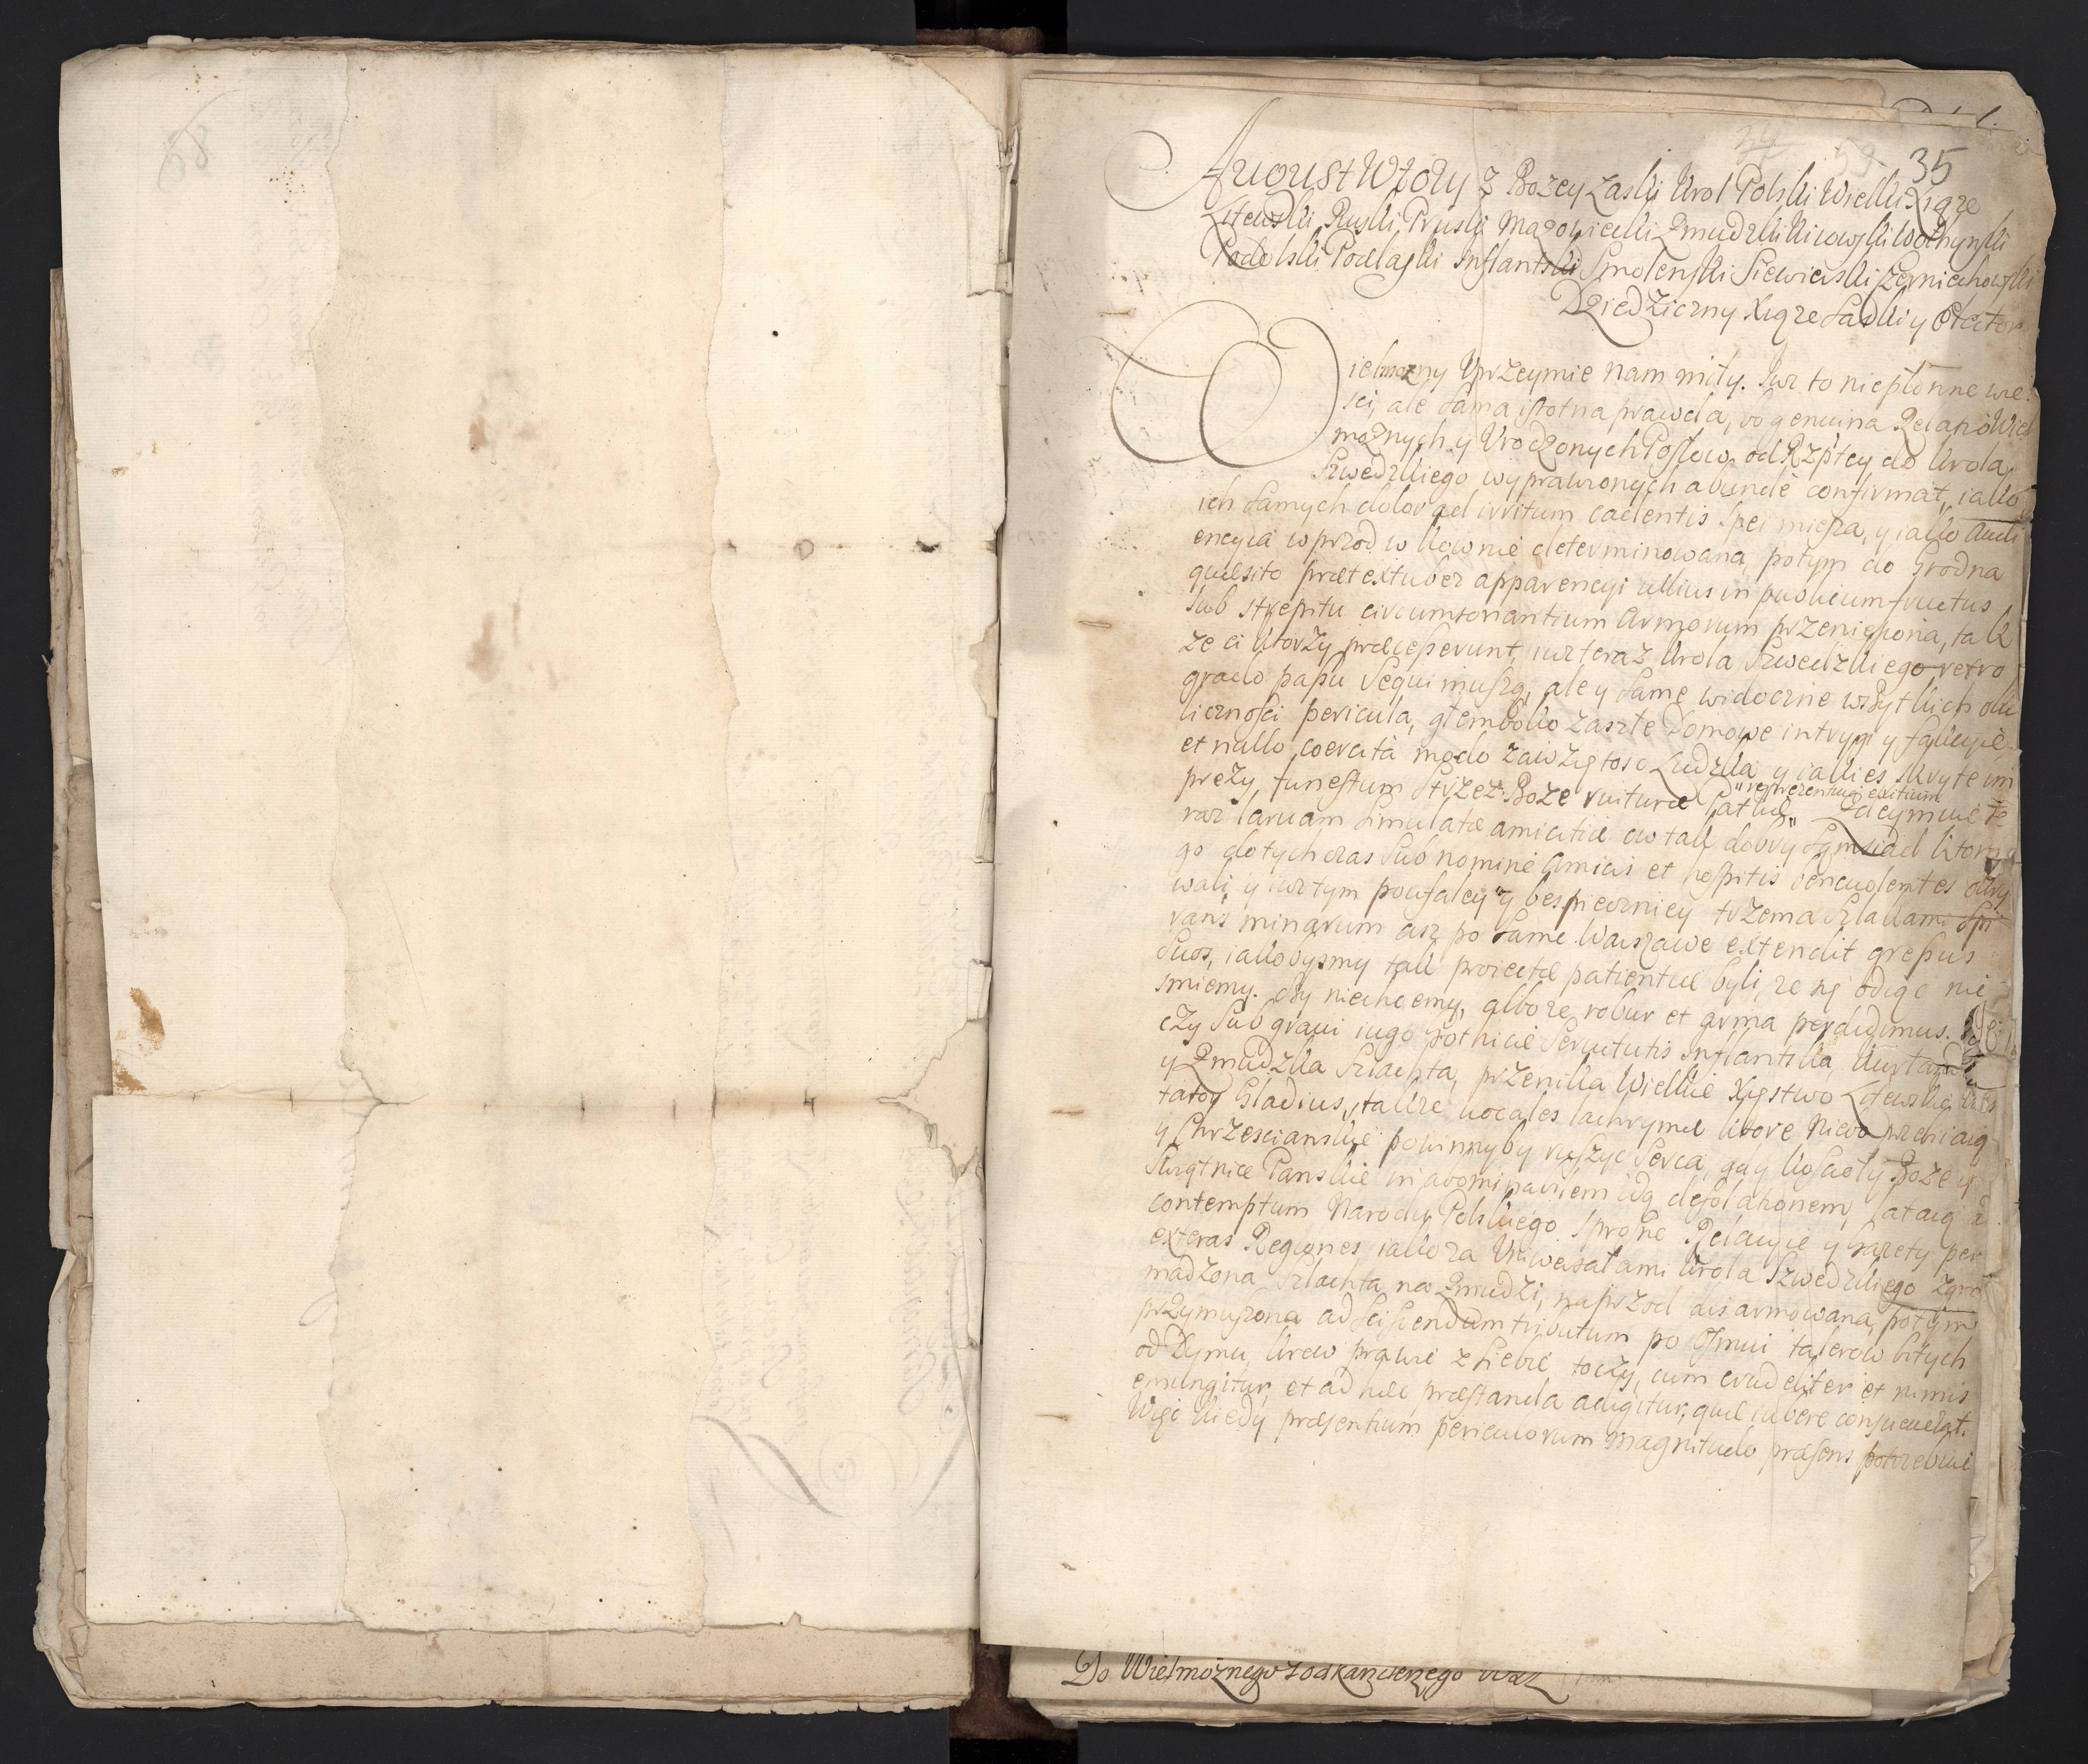 58
34 59 35
August Wtory z Bozey Łaski Krol Polski Wielki Xiąze
Litewski Ruski Pruski Mazowiecki Zmudzki Kiiowski Wołhynski
Podolski Podlaski Inflantski Smolenski Siewierski Czerniechowski
Dziedziczny Xiąze Saski y Elektor
Wielmozny Uprzeymie nam miły. Iuz to niepłonne wie
sci, ale sama istotna prawda, bo genuina Relatio Wiel
moznych y Urodzonych Posłow od Rzptey do Krola
Szwedzkiego wyprawionych abunde confirmat, iako
ich samych dolor ad irritum cadentis spei miesza, y iako Audi
encyia wprzod w Kownie determinowana, potym do Grodna
quaesito praetextu bez apparencyi ullius in publicum fructus
sub strepitu circumsonantium Armorum przeniesiona, tak
ze ci ktorzy praecesserunt, iuz teraz Krola Szwedzkiego retro
grado passu sequi muszą, ale y same widocznie wszytkich oko
licznosci pericula, głemboko zaszłe domowe intrygi y fakcyie
et nullo coercita modo zawziętosc Ludzka y iakies skryte im
prezy, funestum strzez Boze ruiturae Patriae
reprezentuią exitium
Zdeymuie te
raz larvam simulatae amicitiae ow tak dobry Sąmsiad ktorą
go dotychczas sub nomine Amici et hospitis benevolentes okry
wali, y iuz tym poufaley y bespieczniey trzema Szlakami spi
rans minarum asz po same Warszawe extendit gressus
suos, iakobysmy tak proiectae patientiae byli, ze się odiąc nie
smiemy. Czy niechcemy, albo ze robur et arma perdidimus.
czy sub gravi iugo Gothicae Servitutis Inflantska, Kurlandska
y Zmudzka Szlachta, przenika Wielkie Xięstwo Litewskie
tator Gladius, takze vocales lachrymae ktore Niebo przebiaią
y Chrzescianskie powinnyby ruszyc serca, gdy Koscioły Boze y
Swiątnice Panskie in abominabilem idą desolationem, lataią in
contemptum Narodu Polskiego sprosne Relacyie y Gazety per
exteras Regiones iako za Uniwersałami Krola Szwedzkiego zgro
madzona Szlachta na Zmudzi, naprzod disarmowana, potym
przymuszona ad sciscendum tributum po osmui talerow bitych
od Dymu, krew prawie z siebie toczy, cum crudeliter et nimis
emungitur, et ad haec praestanda adigitur, quae iubere consueverat.
Więc kiedy praesentium periculorum magnitudo, praesens potrzebuie
Do Wielmoznego Podkanclerzego WXL